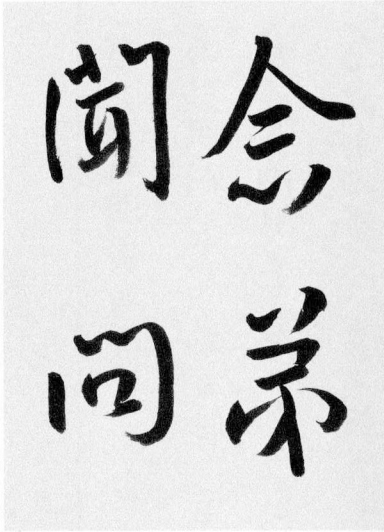 念弟
聞問